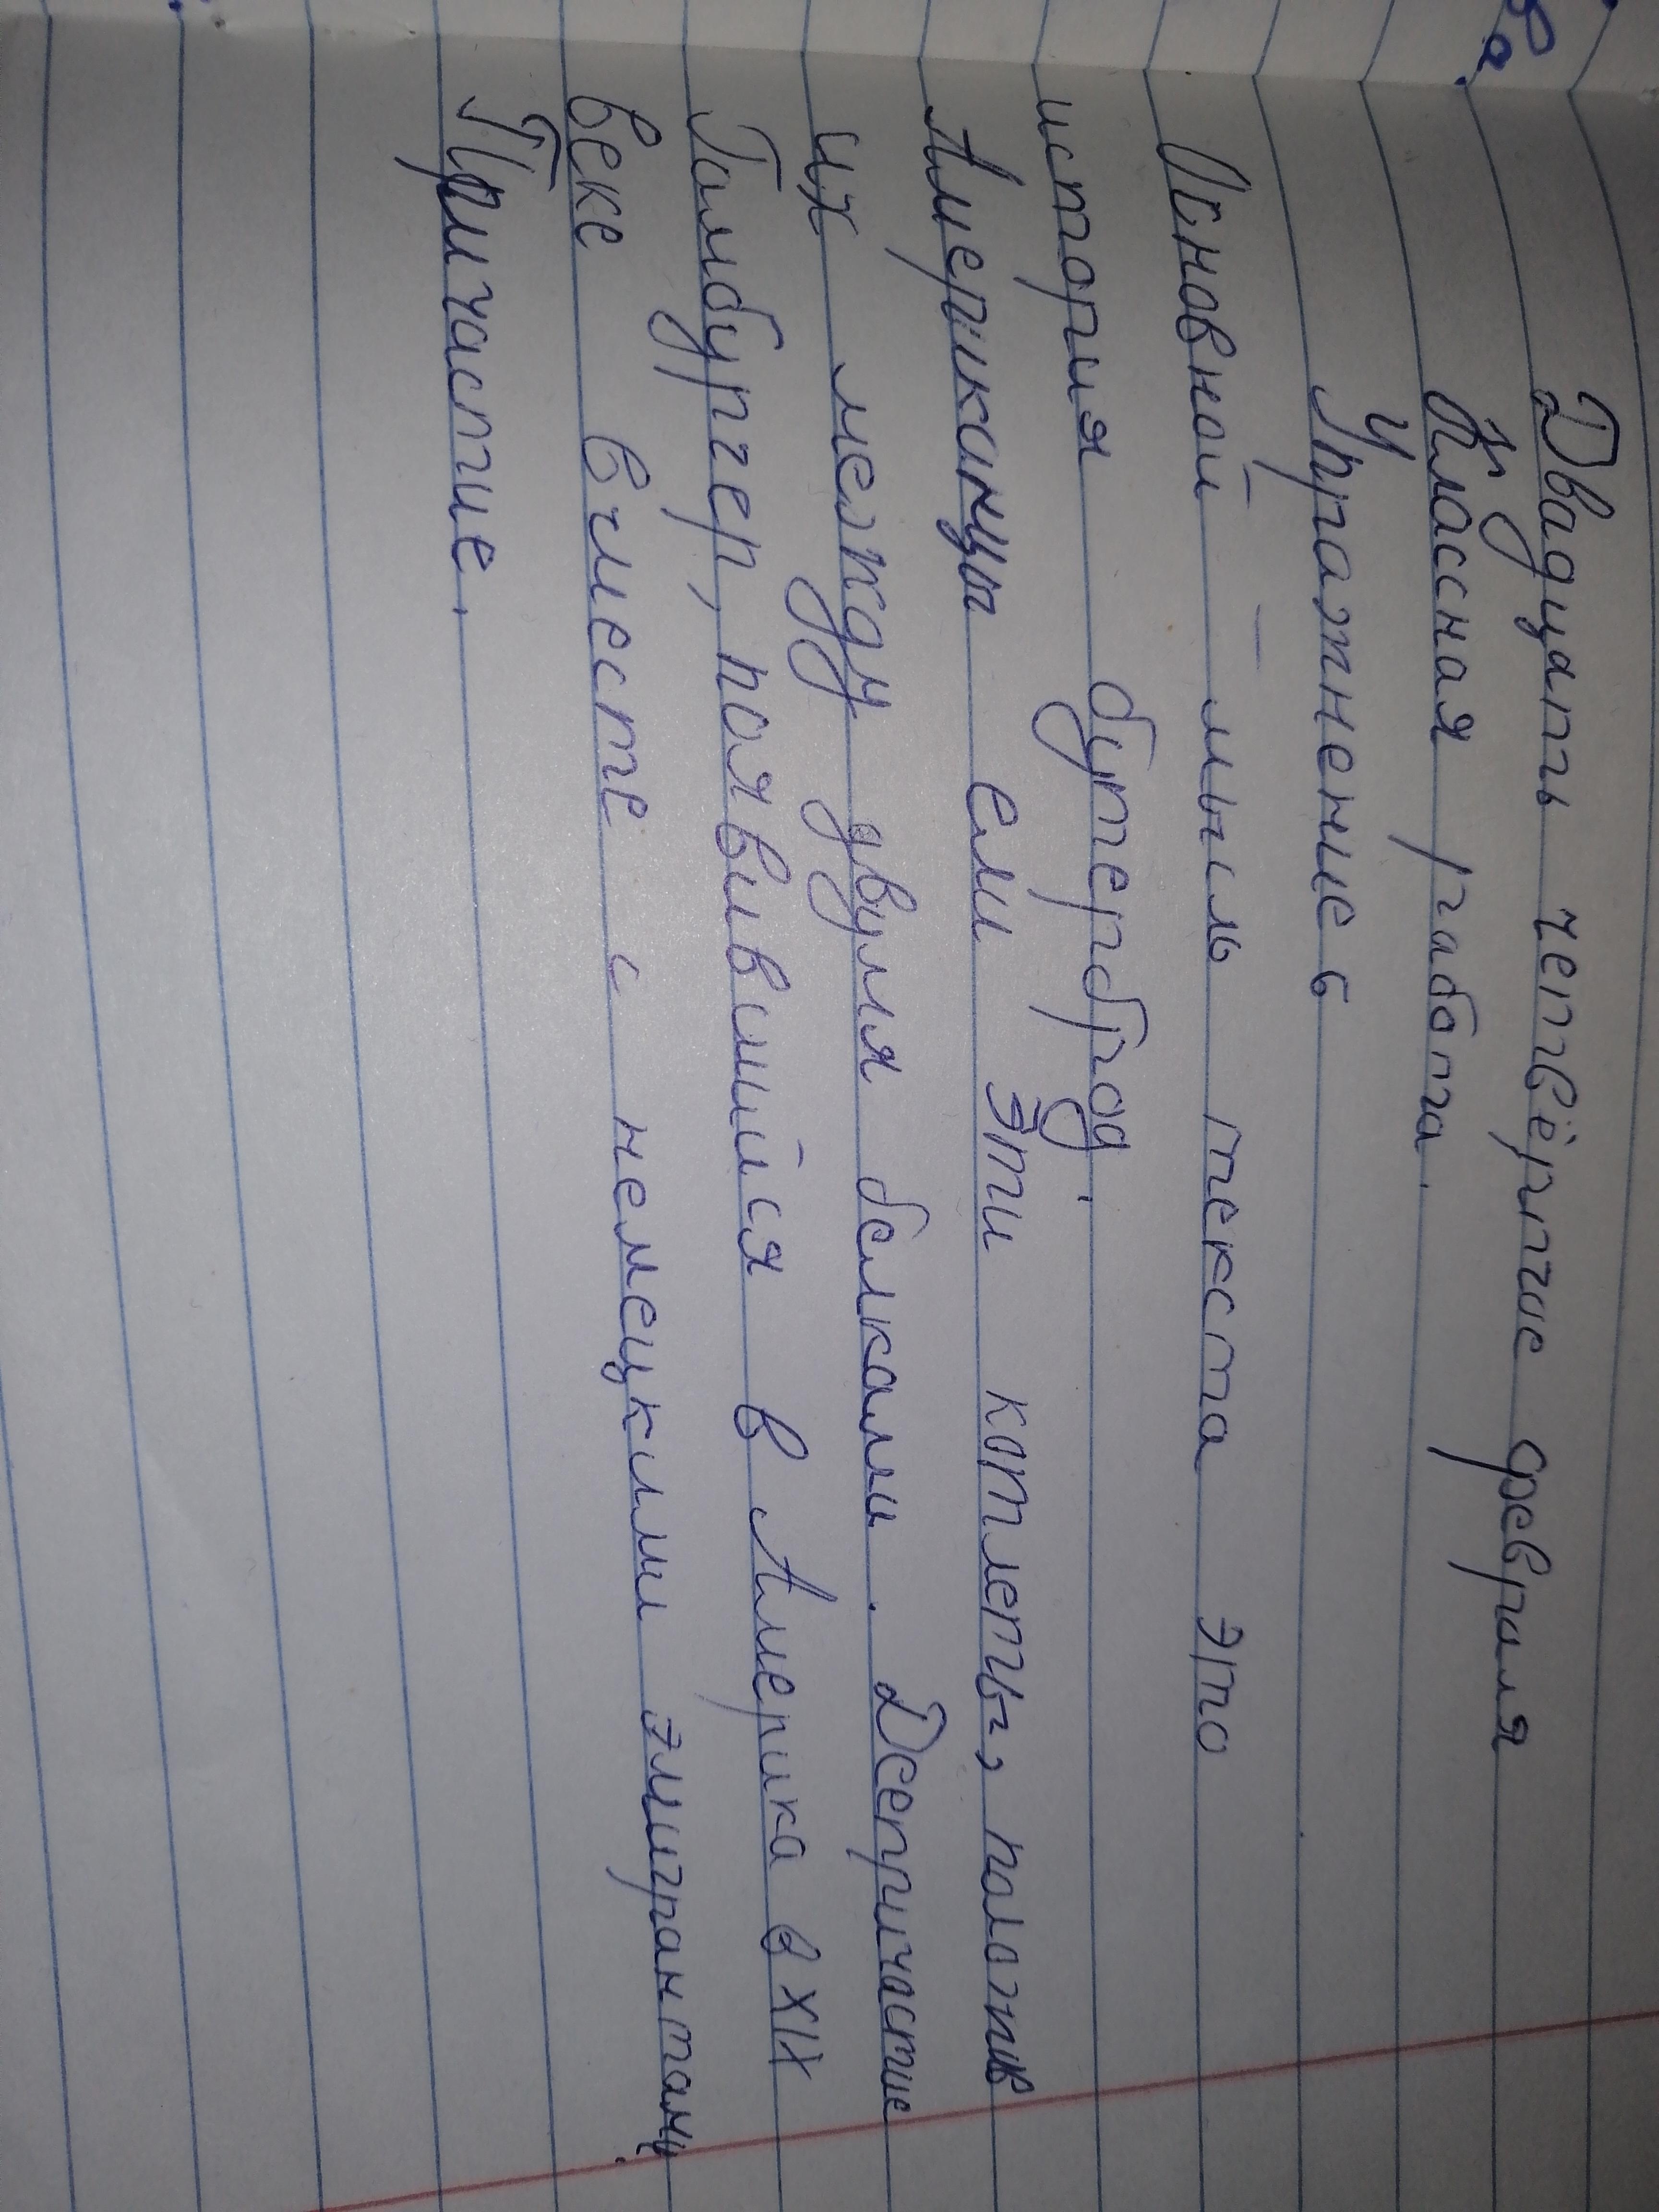 Двадцать четвёртое февраля
Классная работа.
Упражнение 6
Основной мысль текста это
история бутерброд.
Американцы ели эти котлеты, положив
их между двумя булками. Деепричастие
Гамбургер, появившийся в Америка в XIX
веке вместе с немецкими эмигрантами.
Причастие.